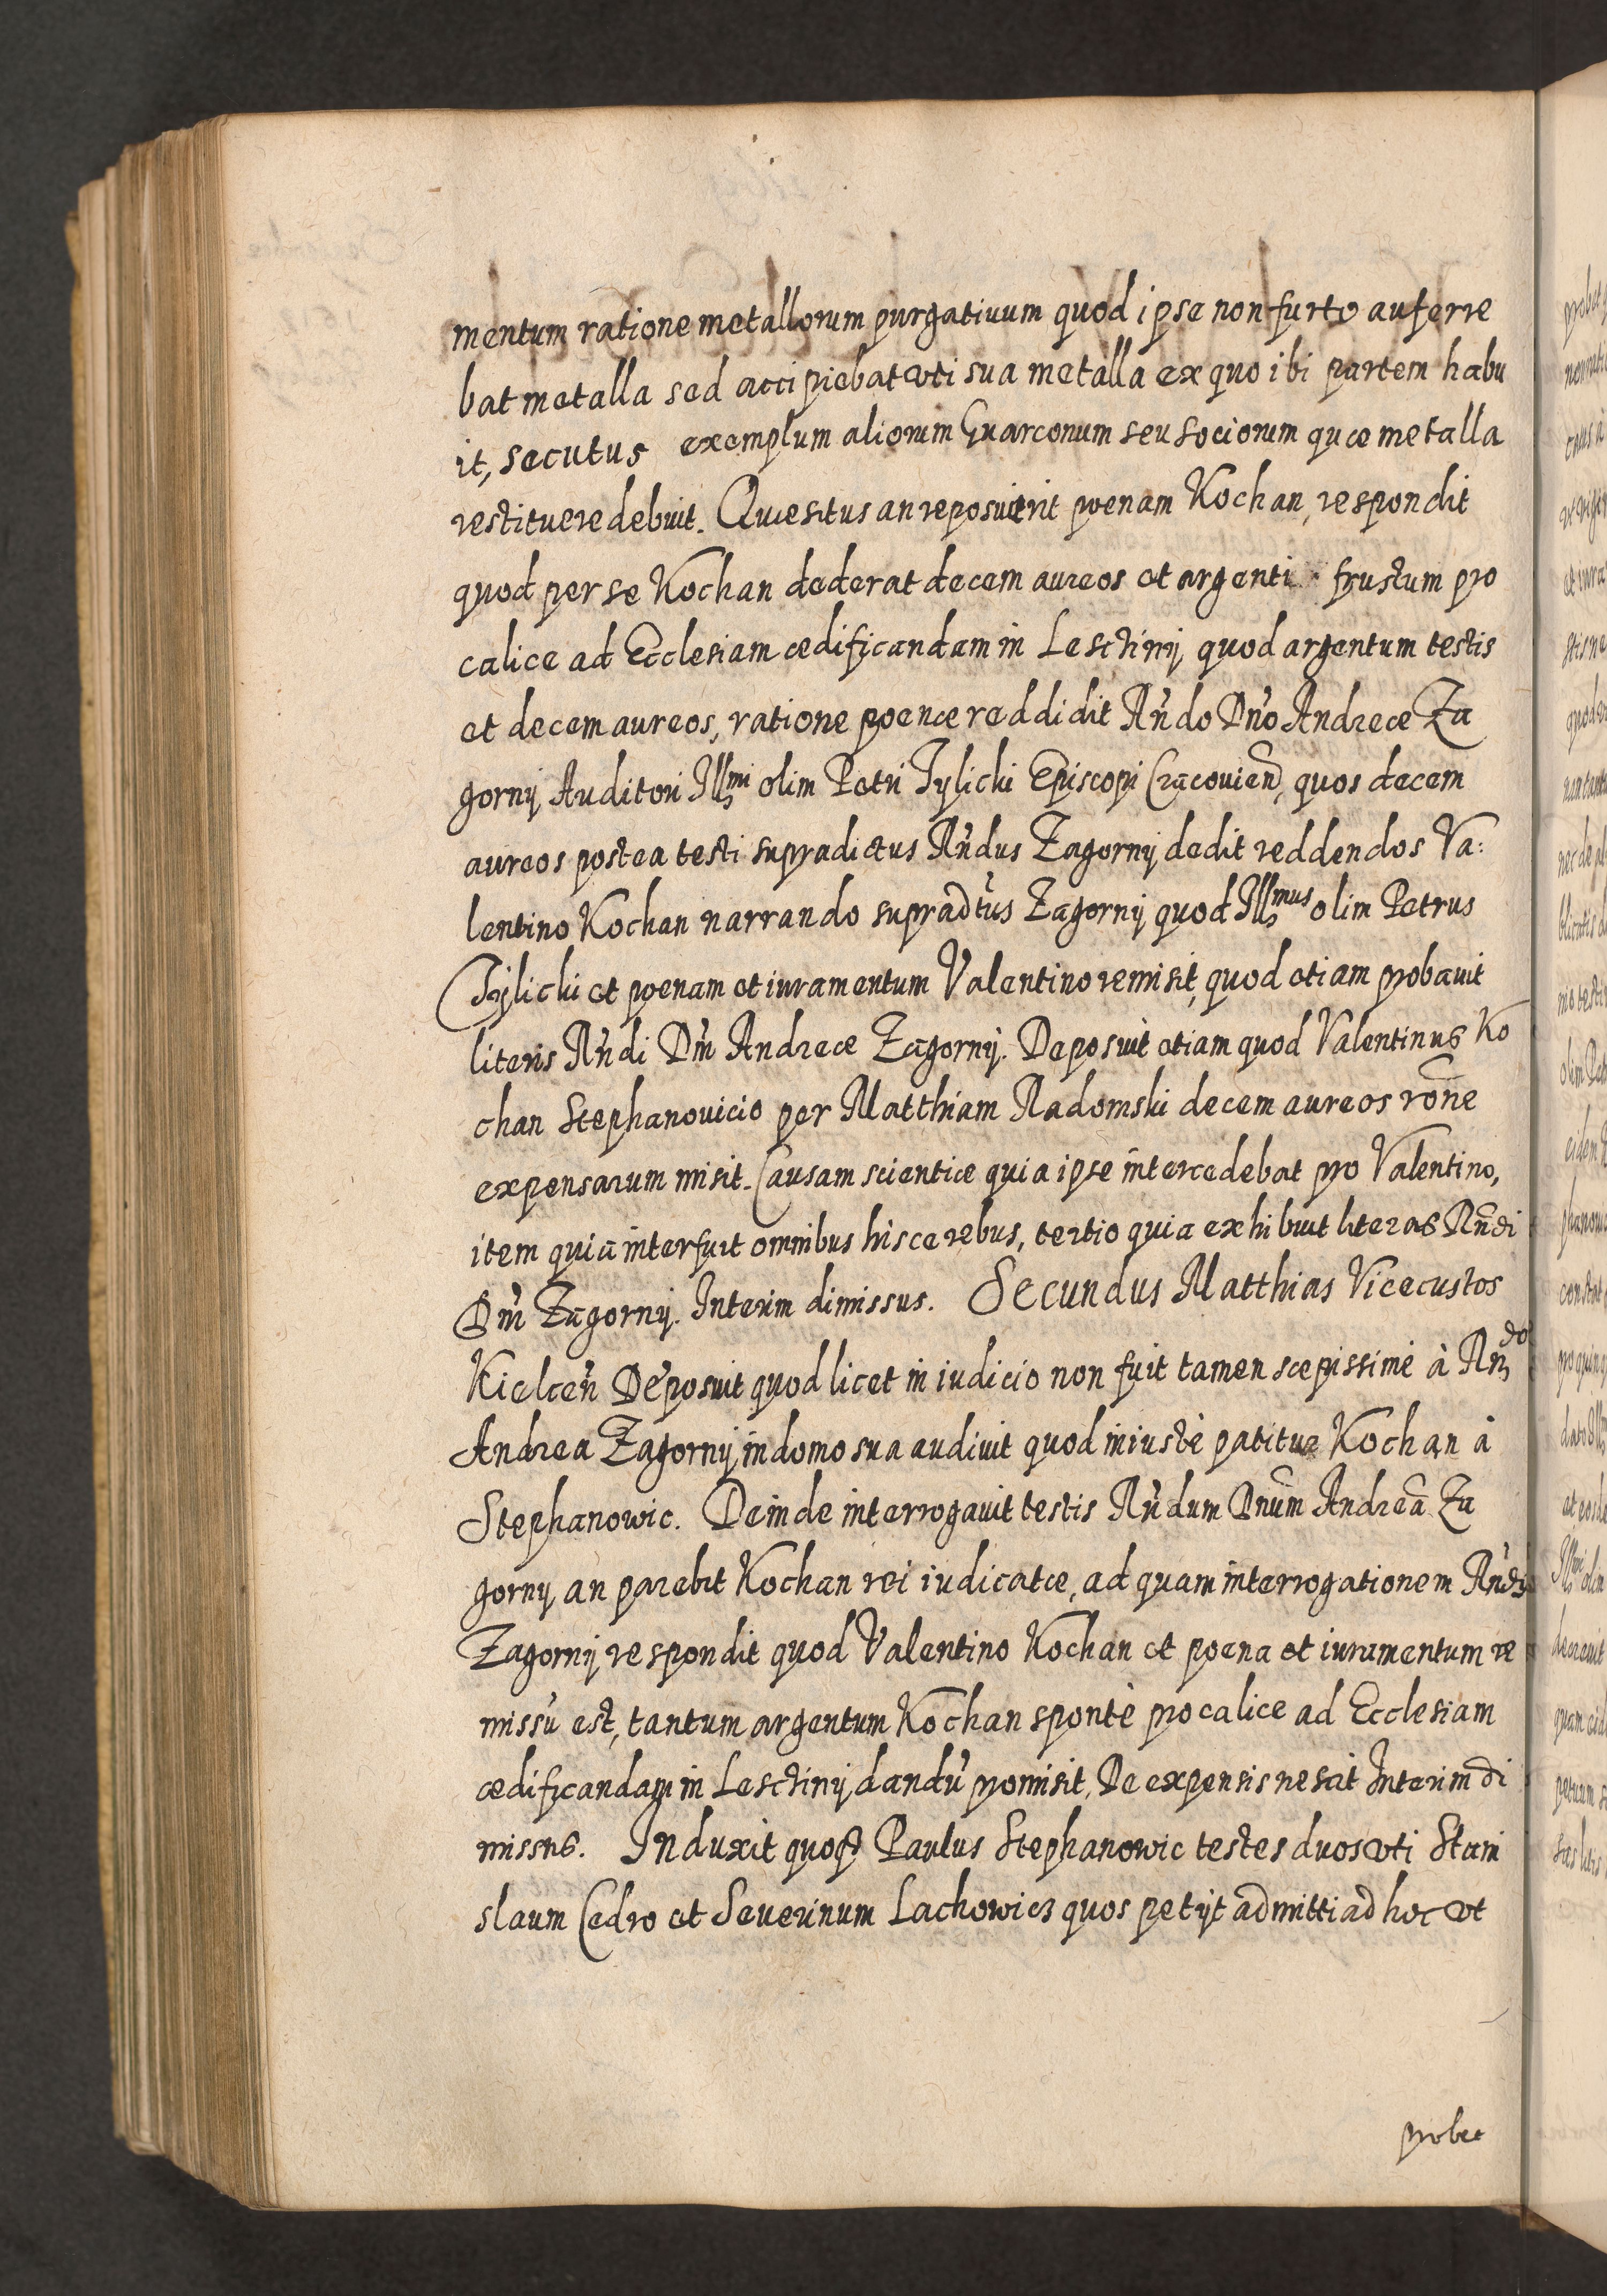 mentum ratione metallorum purgativum quod ipse non furto auferre
bat metalla sed accipiebat vti sua metalla ex quo ibi partem habu
it, secutus exemplum aliorum Gvarconum seu sociorum quæ metalla
restituere debuit. Quæsitus an reposuerit pœnam Kochan, respondit
quod per se Kochan dederat decem aureos et argenti frustum pro
calice ad Ecclesiam ædificandam in Lesctiny, quod argentum testis
et decem aureos, ratione pœnæ reddidit Rńdo Dńo Andreæ Za
gorny Auditori Illmi olim Petri Tylicki Episcopi Cracovień, quos decem
aureos postea testi supradictus Rńdus Zagorny dedit reddendos Va:
lentino Kochan narrando supradtus Zagorny quod Illmus olim Petrus
Tylicki et pœnam et iuramentum Valentino remisit, quod etiam probauit
literis Rńdi Dńi Andreæ Zagorny. Deposuit etiam quod Valentinus Ko
chan Stephanouicio per Matthiam Radomski decem aureos rone
expensarum misit. Causam scientiæ quia ipse intercedebat pro Valentino,
item quia interfuit omnibus hisce rebus, tertio quia exhibuit literas Rndi
Dńi Zagorny. Interim dimissus. Secundus Matthias Vicecustos
Kielceń Deposuit quod licet in iudicio non fuit tamen sæpissimè à Rndo
Andrea Zagorny in domo sua audiuit quod iniustè patitur Kochan à
Stephanowic. Deinde interrogauit testis Rńdum Dnum Andreã Za
gorny an parebit Kochan rei iudicatæ, ad quam interrogationem Rńds
Zagorny respondit quod Valentino Kochan et pœna et iuramentum re
missũ est, tantum argentum Kochan spontè pro calice ad Ecclesiam
ædificandam in Lesctiny dandũ promisit. De expensis nescit Interim di
missus. Induxit quoqꝫ Paulus Stephanowic testes duos vti Stani
slaum Cedro et Seuerinum Lachowicz quos petijt admitti ad hoc vt
probet